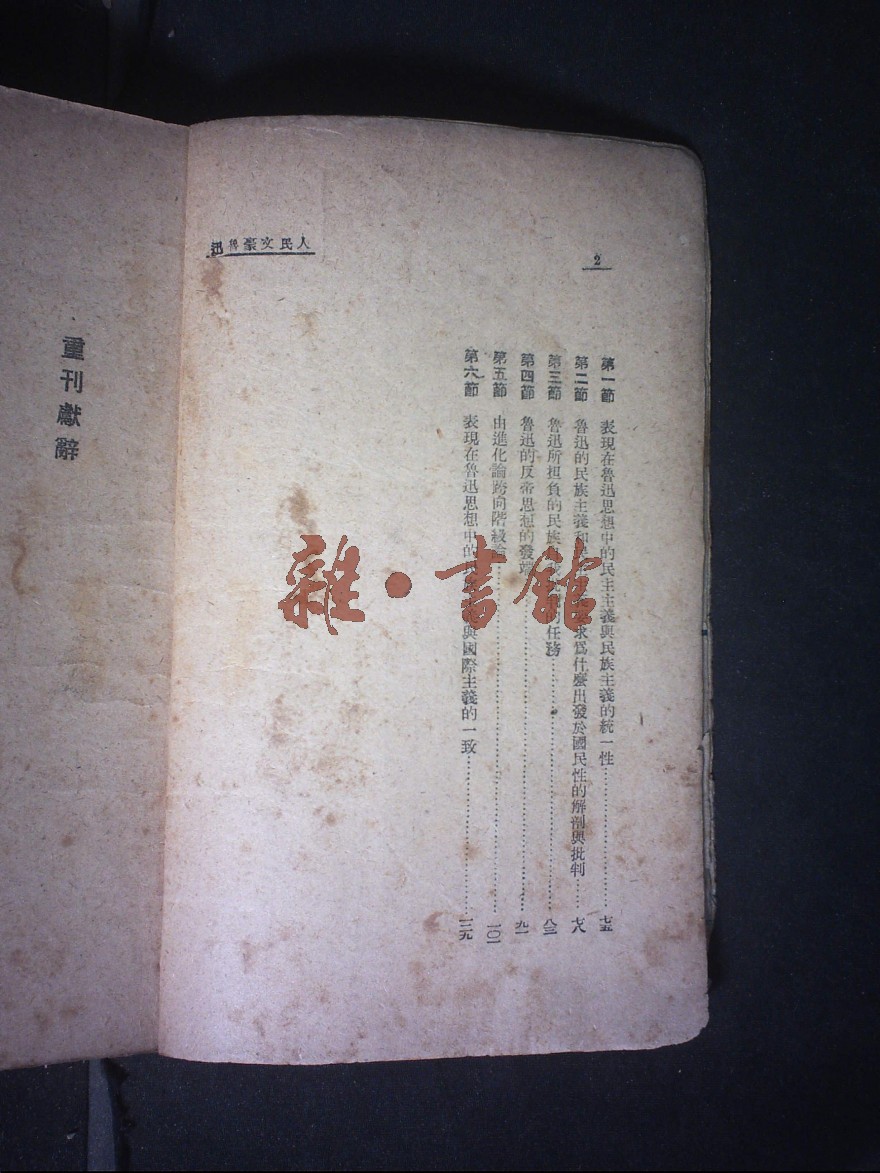 2
人民文豪魯迅
第一節 表現在魯迅思想中的民主主義與民族主義的統一性……七五
第二節 魯迅的民族主義和 求爲什麼出發於國民性的解剖與批判……七八
第三節 魯迅所担負的民族 的任務……八三
第四節 魯迅的反帝思想的發端……九一
第五節 由進化論跨向階級論……一〇一
第六節 表現在魯迅思想中的 與國際主義的一致……一二九
重刊獻辭
雜·書館